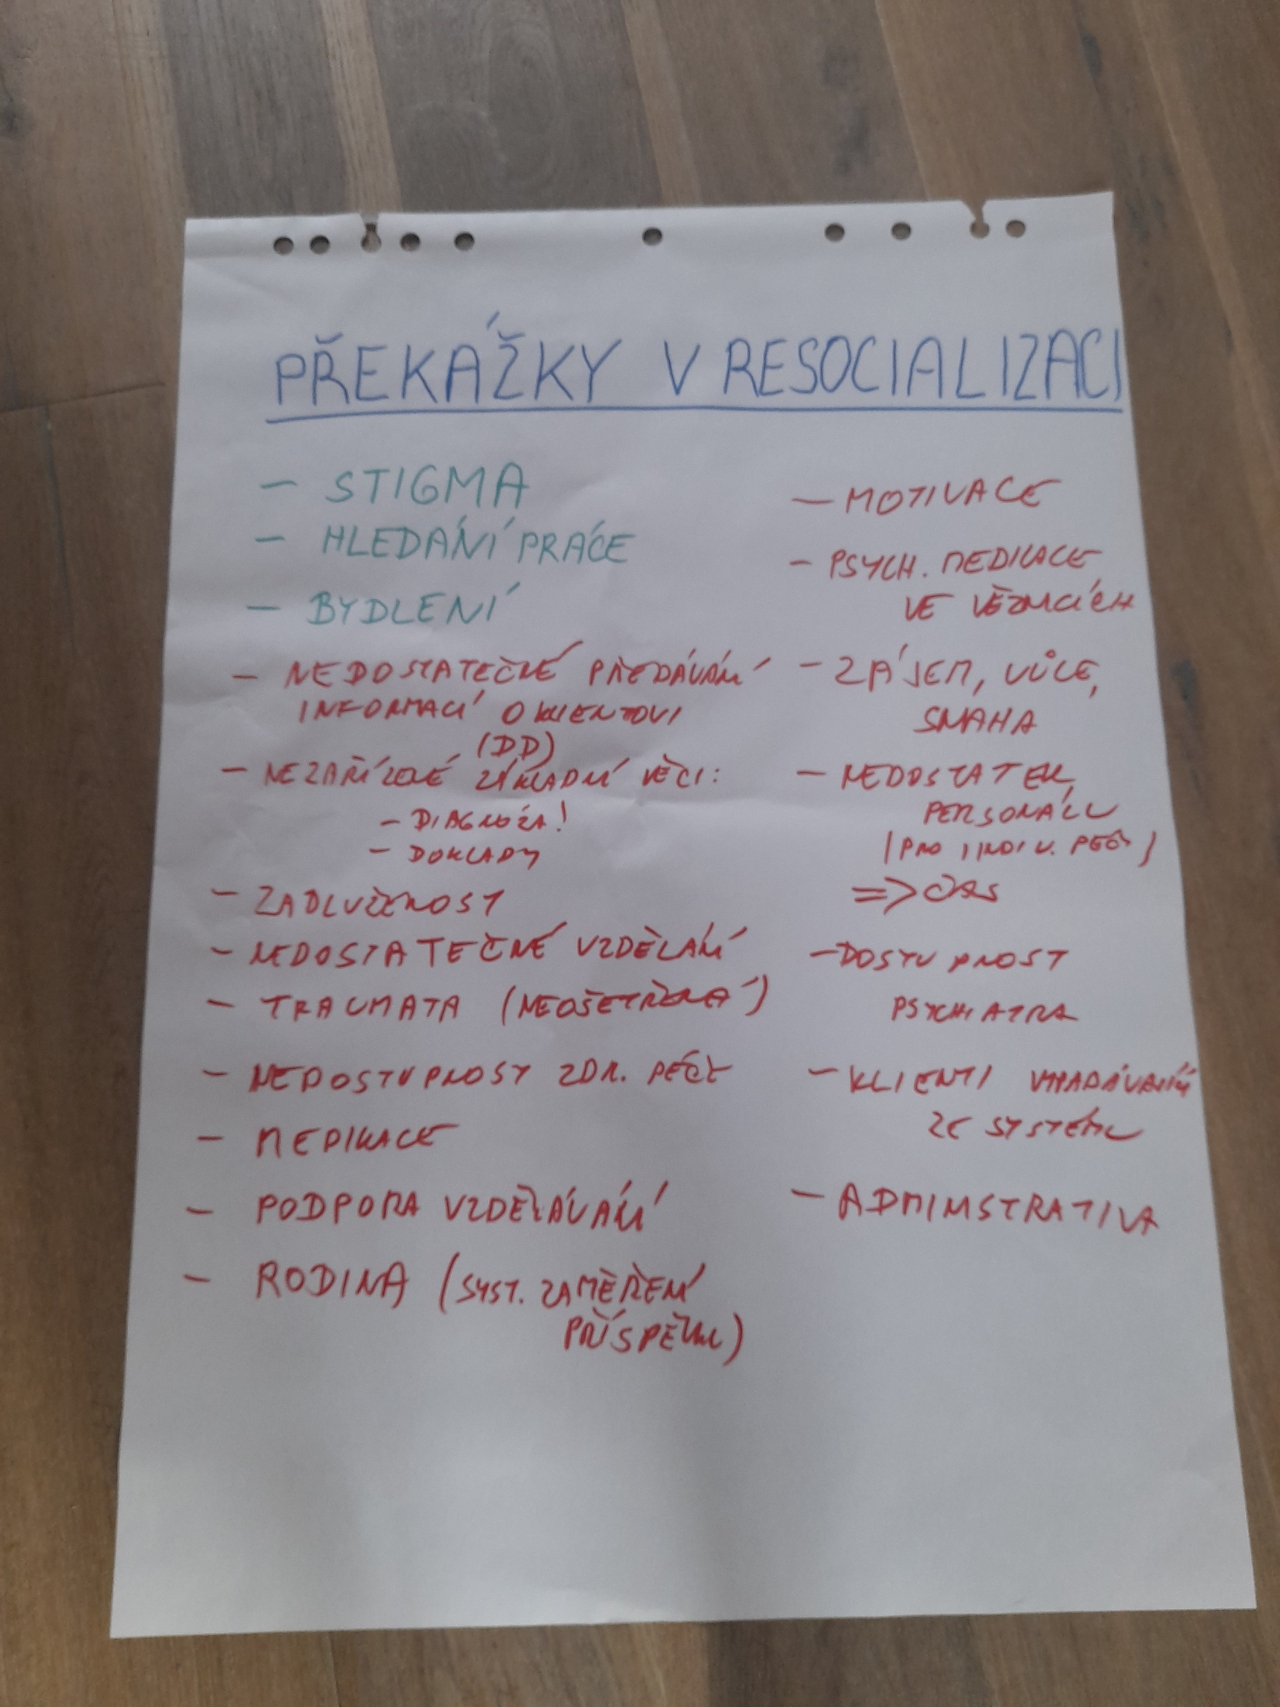 PŘEKÁŽKY V RESOCIALIZACI
- STIGMA
- HLEDÁNÍ PRÁCE
- BYDLENÍ
- NEDOSTATEČNÉ PŘEDÁVÁNÍ
INFORMACÍ O KLIENTOVI
(DD)
- NEZAŘÍZENÉ ZÁKLADNÍ VĚCI:
- DIAGNÓZA!
- DOKLADY
- ZADLUŽENOST
- NEDOSTATEČNÉ VZDĚLÁNÍ
- TRAUMATA (NEOŠETŘENÁ)
- NEDOSTUPNOST ZDR. PÉČE
- MEDIKACE
- PODPORA VZDĚLÁVÁNÍ
- RODINA (SYST. ZAMĚŘENÍ
PŘÍSPĚVKU)
- MOTIVACE
- PSYCH. MEDIKACE
VE VĚZNICÍCH
- ZÁJEM, VŮLE,
SNAHA
- NEDOSTATEK
PERSONÁLU
(PRO INDIV. PÉČI)
=> ČAS
- DOSTUPNOST
PSYCHIATRA
- KLIENTI VYPADÁVAJÍ
ZE SYSTÉMU
- ADMINSTRATIVA